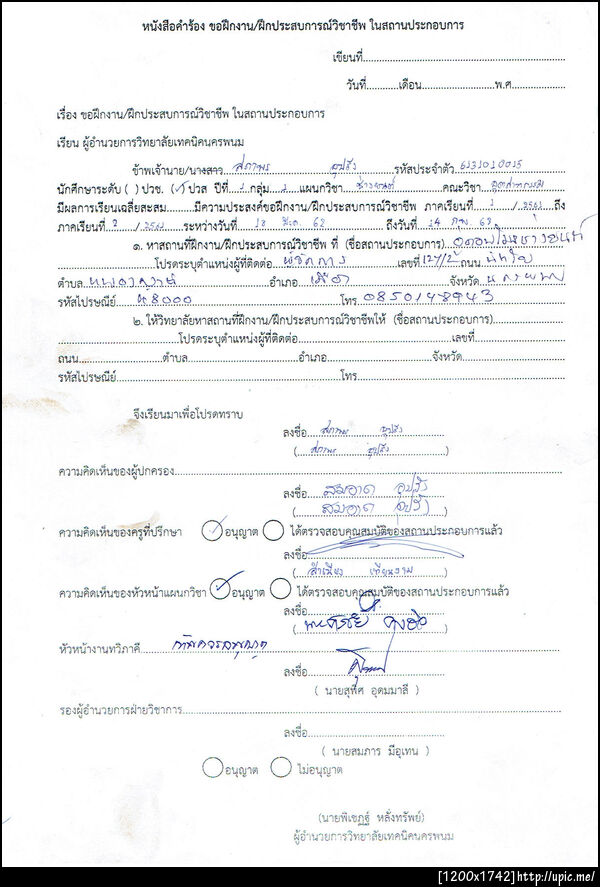 หนังสือคำร้อง ขอฝึกงาน/ฝึกประสบการณ์วิชาชีพ ในสถานประกอบการ
เขียนที่
วันที่............เดือน......................พ.ศ
เรื่อง ขอฝึกงาน/ฝึกประสบการณ์วิชาชีพ ในสถานประกอบการ
เรียน ผู้อำนวยการวิทยาลัยเทคนิคนครพนม
ข้าพเจ้านาย/นางสาว สถาพร อุปรัง รหัสประจำตัว
นักศึกษาระดับ ( ) ปวช. (/) ปวส ปีที่ 1 กลุ่ม 2 แผนกวิชา ช่างยนต์ คณะวิชา อุตสาหกรรม
มีผลการเรียนเฉลี่ยสะสม............มีความประสงค์ขอฝึกงาน/ฝึกประสบการณ์วิชาชีพ ภาคเรียนที่ 2 / 2561 ถึง
ภาคเรียนที่ 2 / 2561 ระหว่างวันที่ 62 ถึงวันที่ 62
๑. หาสถานที่ฝึกงาน/ฝึกประสบการณ์วิชาชีพ ที่ (ชื่อสถานประกอบการ)
โปรดระบุตำแหน่งผู้ที่ติดต่อ ผู้จัดการ เลขที่ 127/2 ถนน
ตำบล อำเภอ เมือง จังหวัด นครพนม
รหัสไปรษณีย์ 48000 โทร. 0850148943
๒. ให้วิทยาลัยหาสถานที่ฝึกงาน/ฝึกประสบการณ์วิชาชีพให้ (ชื่อสถานประกอบการ)
โปรดระบุตำแหน่งผู้ที่ติดต่อ เลขที่
ถนน ตำบล อำเภอ จังหวัด
รหัสไปรษณีย์ โทร
จึงเรียนมาเพื่อโปรดทราบ
ลงชื่อ สถาพร อุปรัง
( สถาพร อุปรัง )
ความคิดเห็นของผู้ปกครอง
ลงชื่อ สมอาด อุปรัง
( สมอาด อุปรัง )
ความคิดเห็นของครูที่ปรึกษา อนุญาต ได้ตรวจสอบคุณสมบัติของสถานประกอบการแล้ว
ลงชื่อ
( สำเนียง )
ความคิดเห็นของหัวหน้าแผนกวิชา อนุญาต ได้ตรวจสอบคุณสมบัติของสถานประกอบการแล้ว
ลงชื่อ
หัวหน้างานทวิภาคี เห็นควรอนุญาต
ลงชื่อ
( นายสุพิศ อุดมมาลี )
รองผู้อำนวยการฝ่ายวิชาการ
ลงชื่อ
( นายสมภาร มีอุเทน )
อนุญาต ไม่อนุญาต
(นายพิเชฏฐ์ หลั่งทรัพย์)
ผู้อำนวยการวิทยาลัยเทคนิคนครพนม
[1200x1742]http://upic.me/